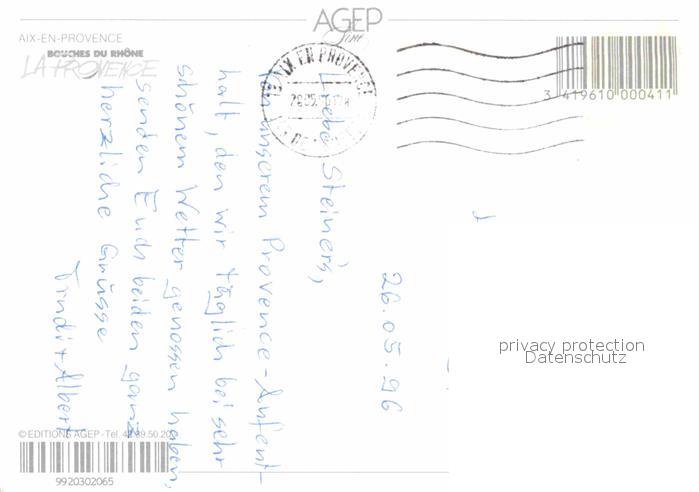 AGEP
AIX-EN-PROVENCE
BOUCHES DU RHÔNE
LA PROVENCE
AIX EN PROVENCE
3 419610 000411
26.05.96
Liebe Steiner's,
Von unserem Provence-Aufent-
halt, den wir täglich bei sehr
schönem Wetter genossen haben,
senden Euch beiden ganz
herzliche Grüsse
Trudi + Albert
privacy protection
Datenschutz
© EDITIONS AGEP - Tel. 42.89.50.20
9920302065